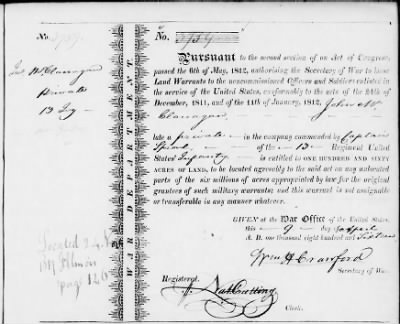 No.
No.
PURSUANT to the second section of an Act of Congress,
passed the 6th of May, 1812, authorising the Secretary of War to issue
Land Warrants to the noncommissioned Officers and Soldiers enlisted in
the service of the United States, conformably to the acts of the 24th of
December, 1811, and of the 11th of January, 1812, John Mc
late a private in the company commanded by Captain
of the 13 Regiment United
States Infantry is entitled to ONE HUNDRED AND SIXTY
ACRES OF LAND, to be located agreeably to the said act on any unlocated
parts of the six millions of acres appropriated by law for the original
grantees of such military warrants; and this warrant is not assignable
or transferable in any manner whatever.
GIVEN at the War Office of the United States,
this 9 day of April
A. D. one thousand eight hundred and Sixteen
Wm H Crawford
Secretary of War.
Registered.
Nat Cutting
Clerk.
WAR DEPARTMENT.
Private
13 Inf
Located
page 126